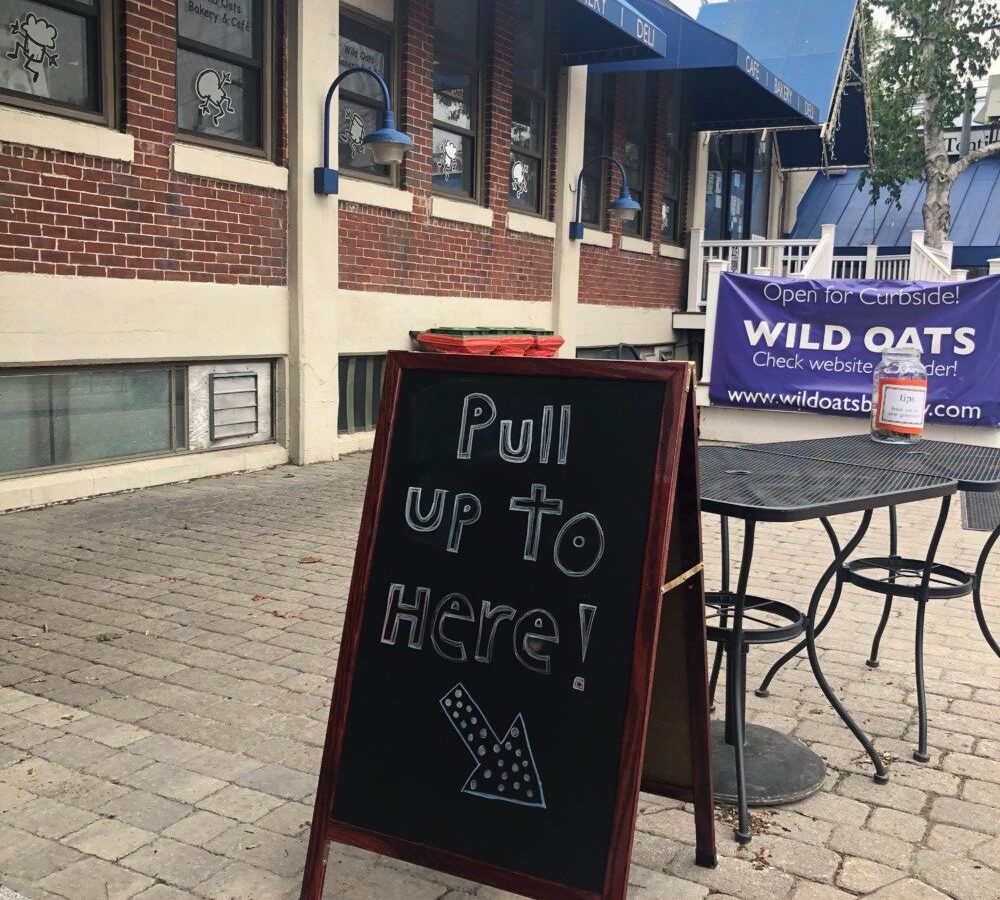 Wild Oats
Bakery & Café
Wild Oats
Bakery
BAKERY | DELI
CAFE | BAKERY | DELI
Open for Curbside!
WILD OATS
Check website
www.wildoatsb
y.com
tips
Pull
up to
Here!